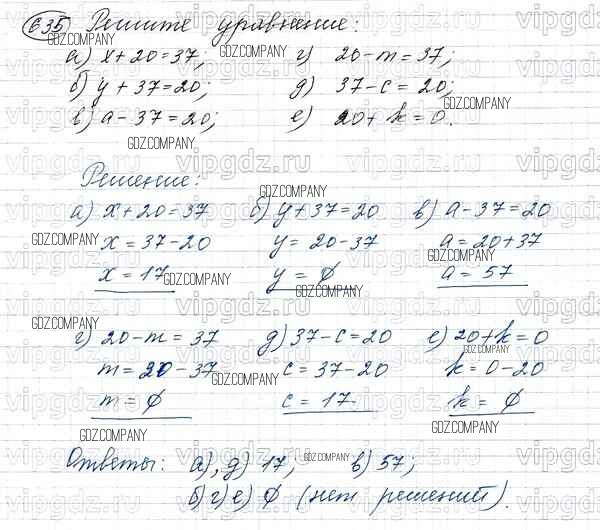 635 Решите уравнение:
а) x+20=37; г) 20-m=37;
б) y+37=20; д) 37-c=20;
в) a-37=20; е) 20+k=0.
Решение:
а) x+20=37 б) y+37=20 в) a-37=20
x=37-20 y=20-37 a=20+37
x=17 y=∅ a=57
г) 20-m=37 д) 37-c=20 е) 20+k=0
m=20-37 c=37-20 k=0-20
m=∅ c=17 k=∅
Ответы: а), д) 17; в) 57;
б) г) е) ∅ (нет решений).
GDZ.COMPANY
vipgdz.ru